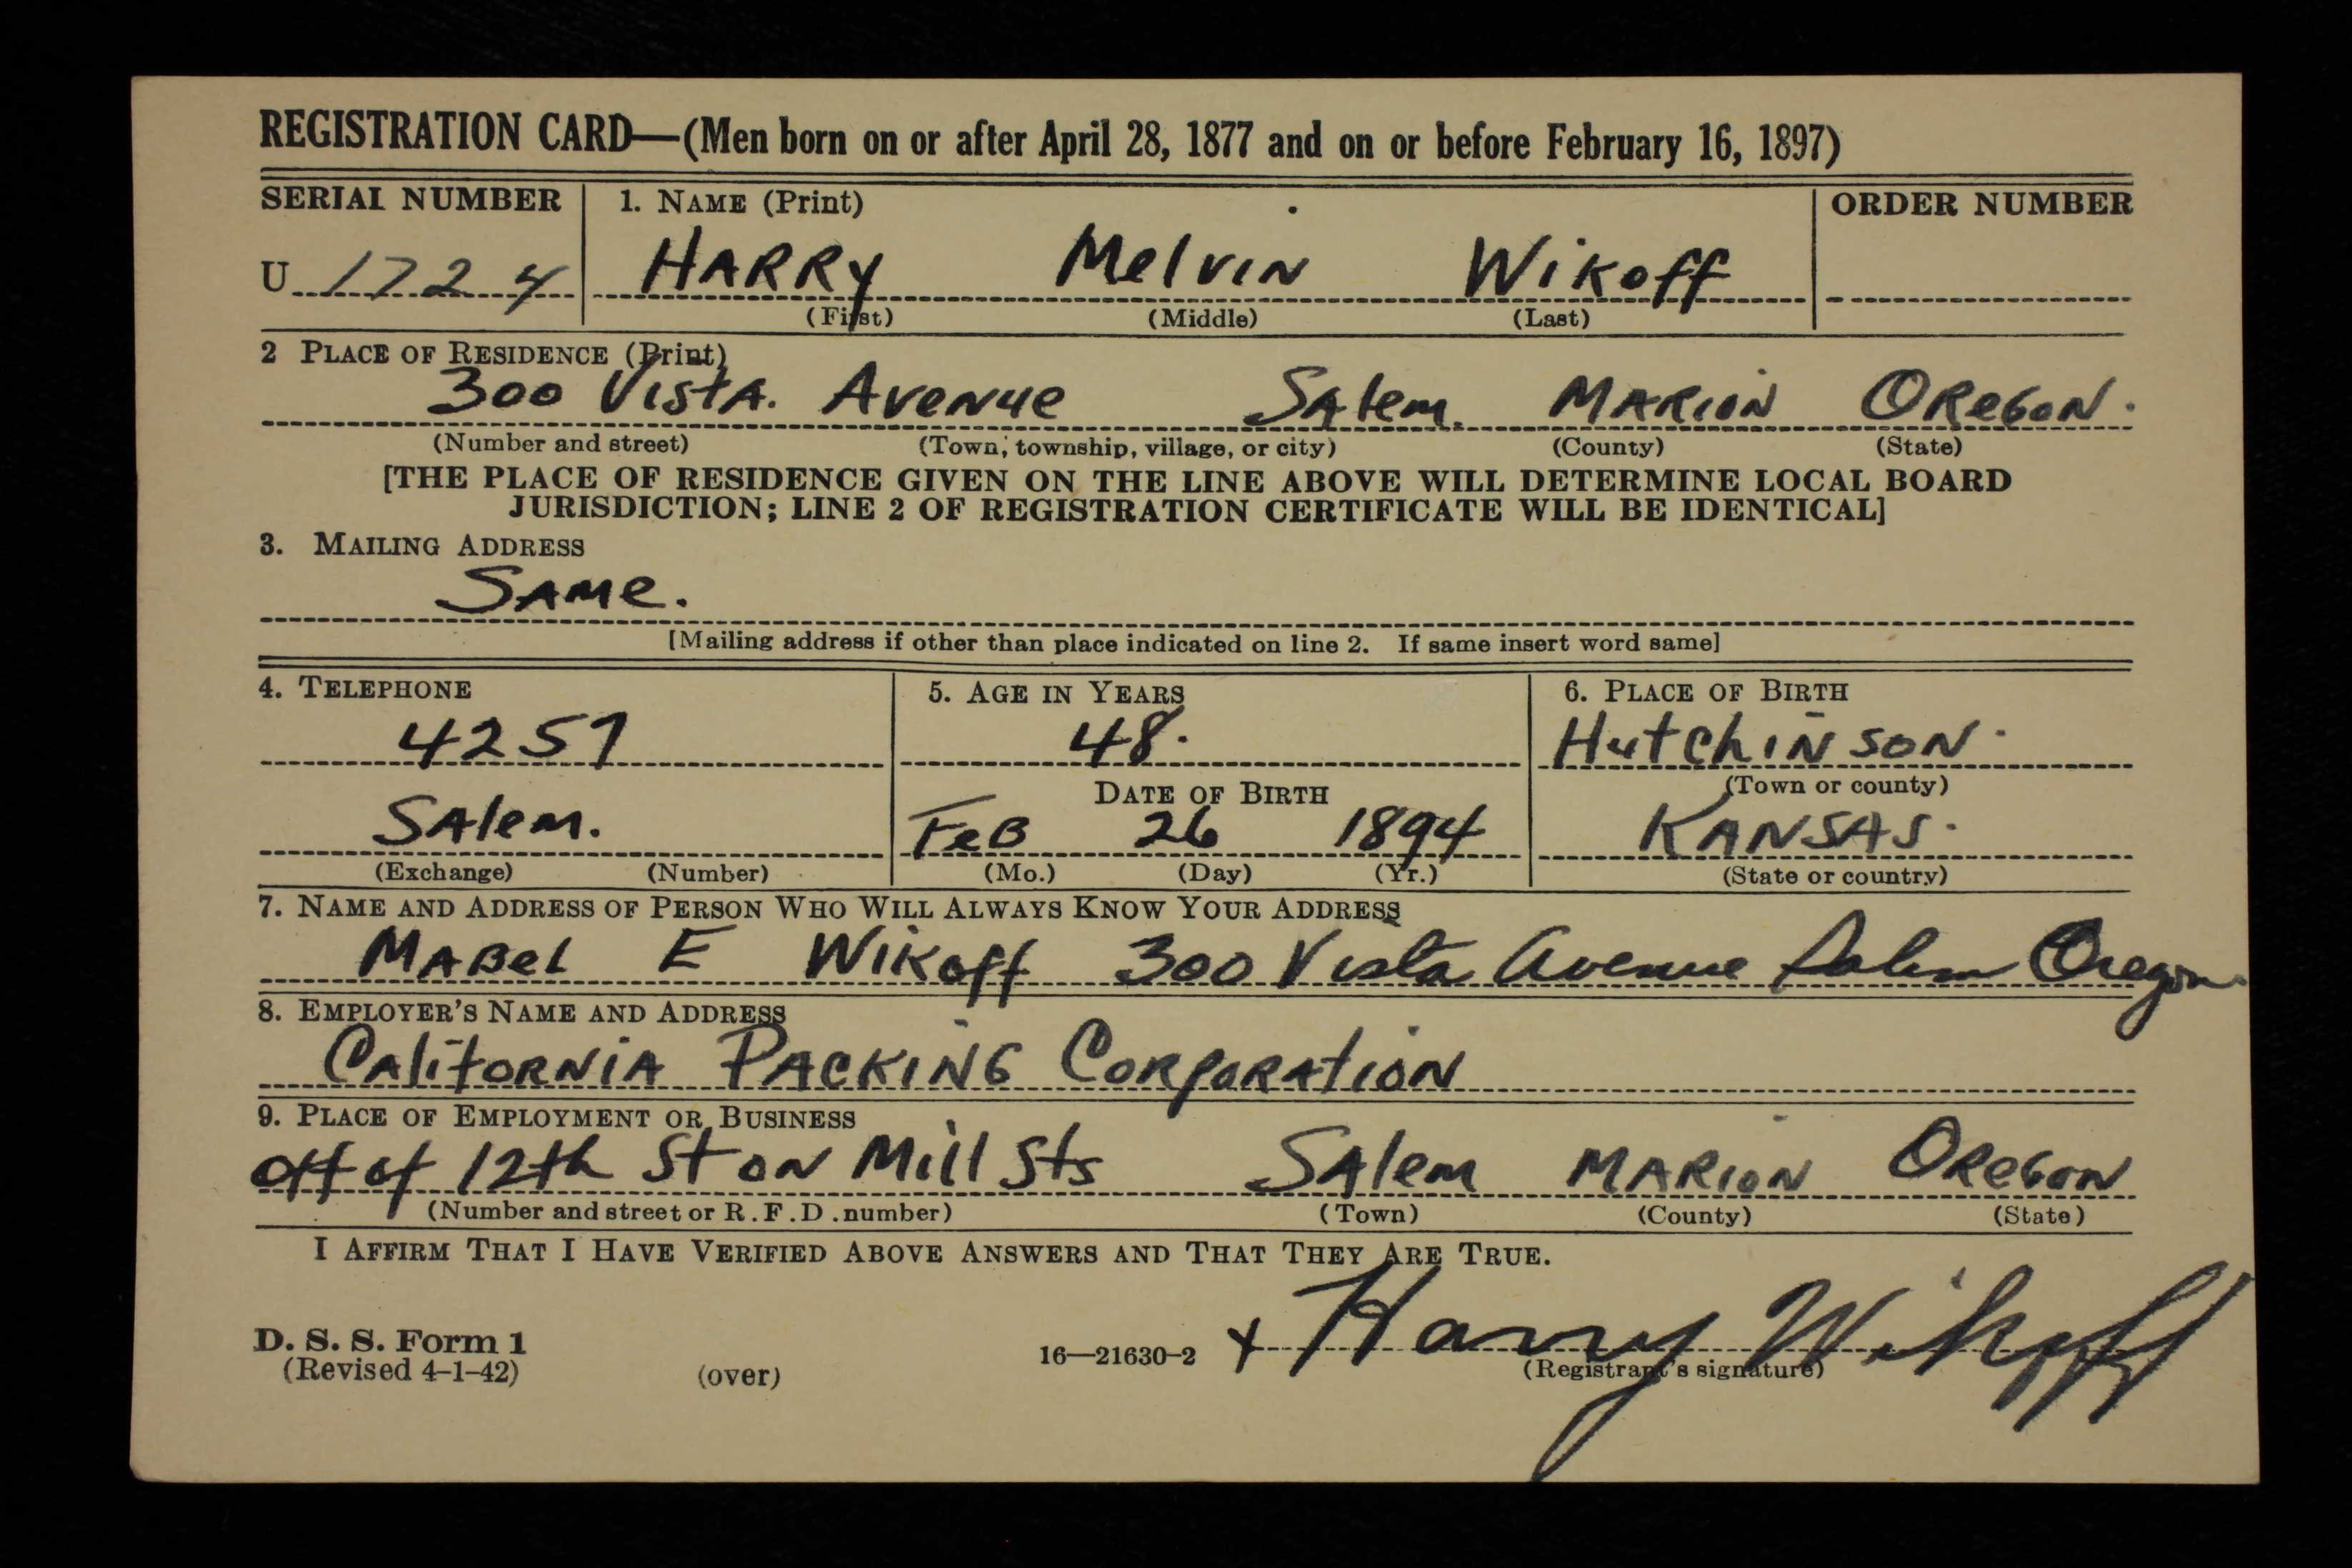 REGISTRATION CARD—(Men born on or after April 28, 1877 and on or before February 16, 1897)
SERIAL NUMBER 1. NAME (Print) ORDER NUMBER
U 1724 HARRY Melvin Wikoff
(First) (Middle) (Last)
2 PLACE OF RESIDENCE (Print)
300 Vista. Avenue Salem. MARION OREGON.
(Number and street) (Town, township, village, or city) (County) (State)
[THE PLACE OF RESIDENCE GIVEN ON THE LINE ABOVE WILL DETERMINE LOCAL BOARD
JURISDICTION; LINE 2 OF REGISTRATION CERTIFICATE WILL BE IDENTICAL]
3. MAILING ADDRESS
SAME.
[Mailing address if other than place indicated on line 2. If same insert word same]
4. TELEPHONE 5. AGE IN YEARS 6. PLACE OF BIRTH
4257 48. Hutchinson.
DATE OF BIRTH (Town or county)
Salem. Feb 26 1894 KANSAS.
(Exchange) (Number) (Mo.) (Day) (Yr.) (State or country)
7. NAME AND ADDRESS OF PERSON WHO WILL ALWAYS KNOW YOUR ADDRESS
MABEL E Wikoff 300 Vista Avenue Salem Oregon.
8. EMPLOYER'S NAME AND ADDRESS
CALIFORNIA PACKING CORPORATION
9. PLACE OF EMPLOYMENT OR BUSINESS
off of 12th St on Mill Sts Salem MARION OREGON
(Number and street or R.F.D. number) (Town) (County) (State)
I AFFIRM THAT I HAVE VERIFIED ABOVE ANSWERS AND THAT THEY ARE TRUE.
D. S. S. Form 1
(Revised 4-1-42) (over) 16—21630-2 x Harry Wikoff
(Registrant's signature)